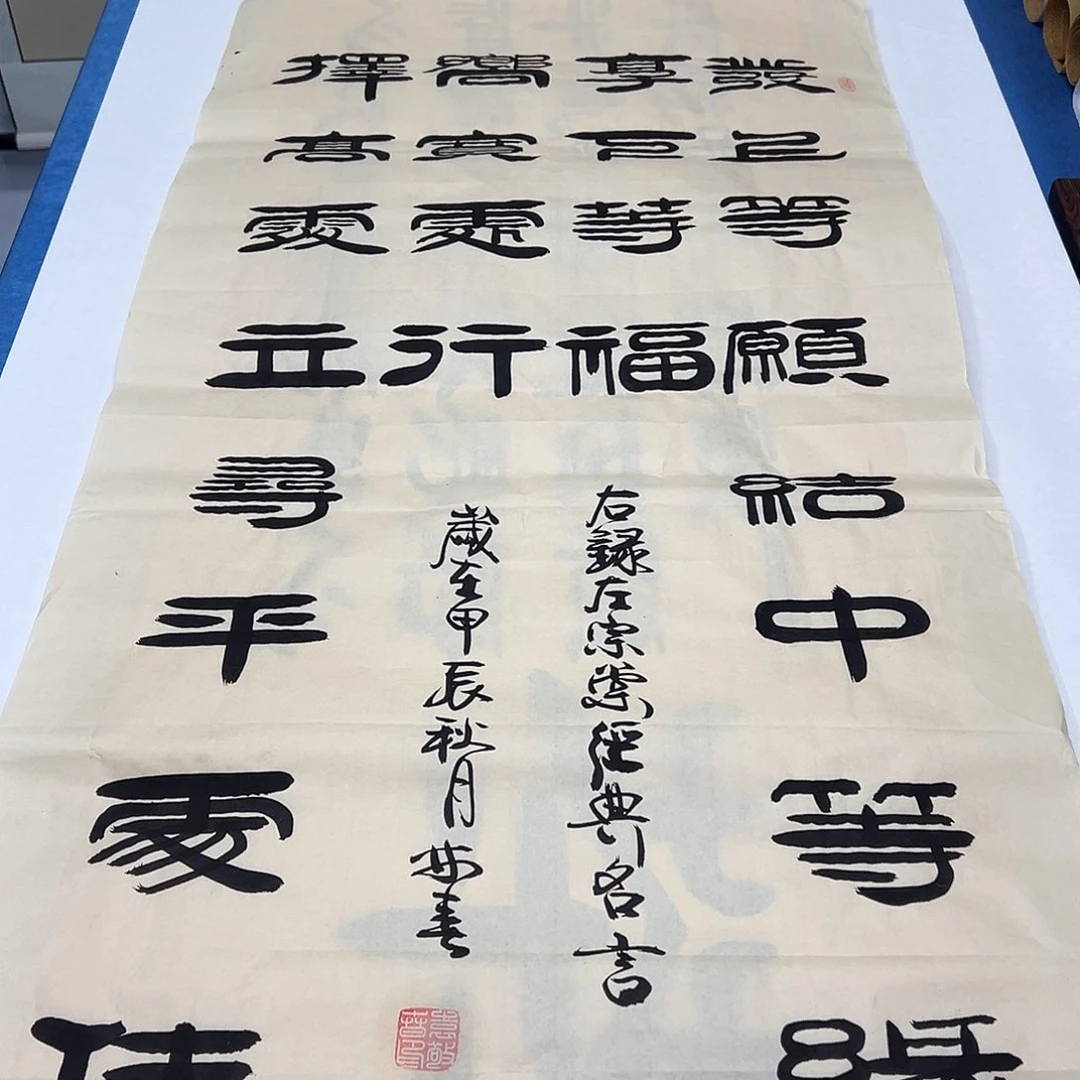 發上等願結中等緣
享下等福
擇高處立尋平處住
嚮寬處行
右錄左宗棠經典名言
歲在甲辰秋月春